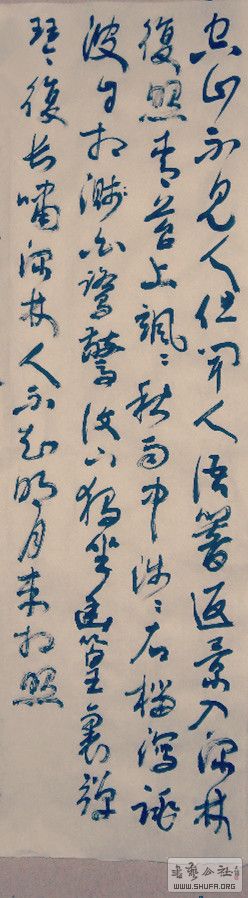 空山不見人但聞人語響返景入深林
復照青苔上颯々秋雨中浅々石榴瀉跳
波自相濺白鷺驚復下獨坐幽篁裏弹
琴復长嘯深林人不知明月来相照
書藝公社
WWW.SHUFA.ORG